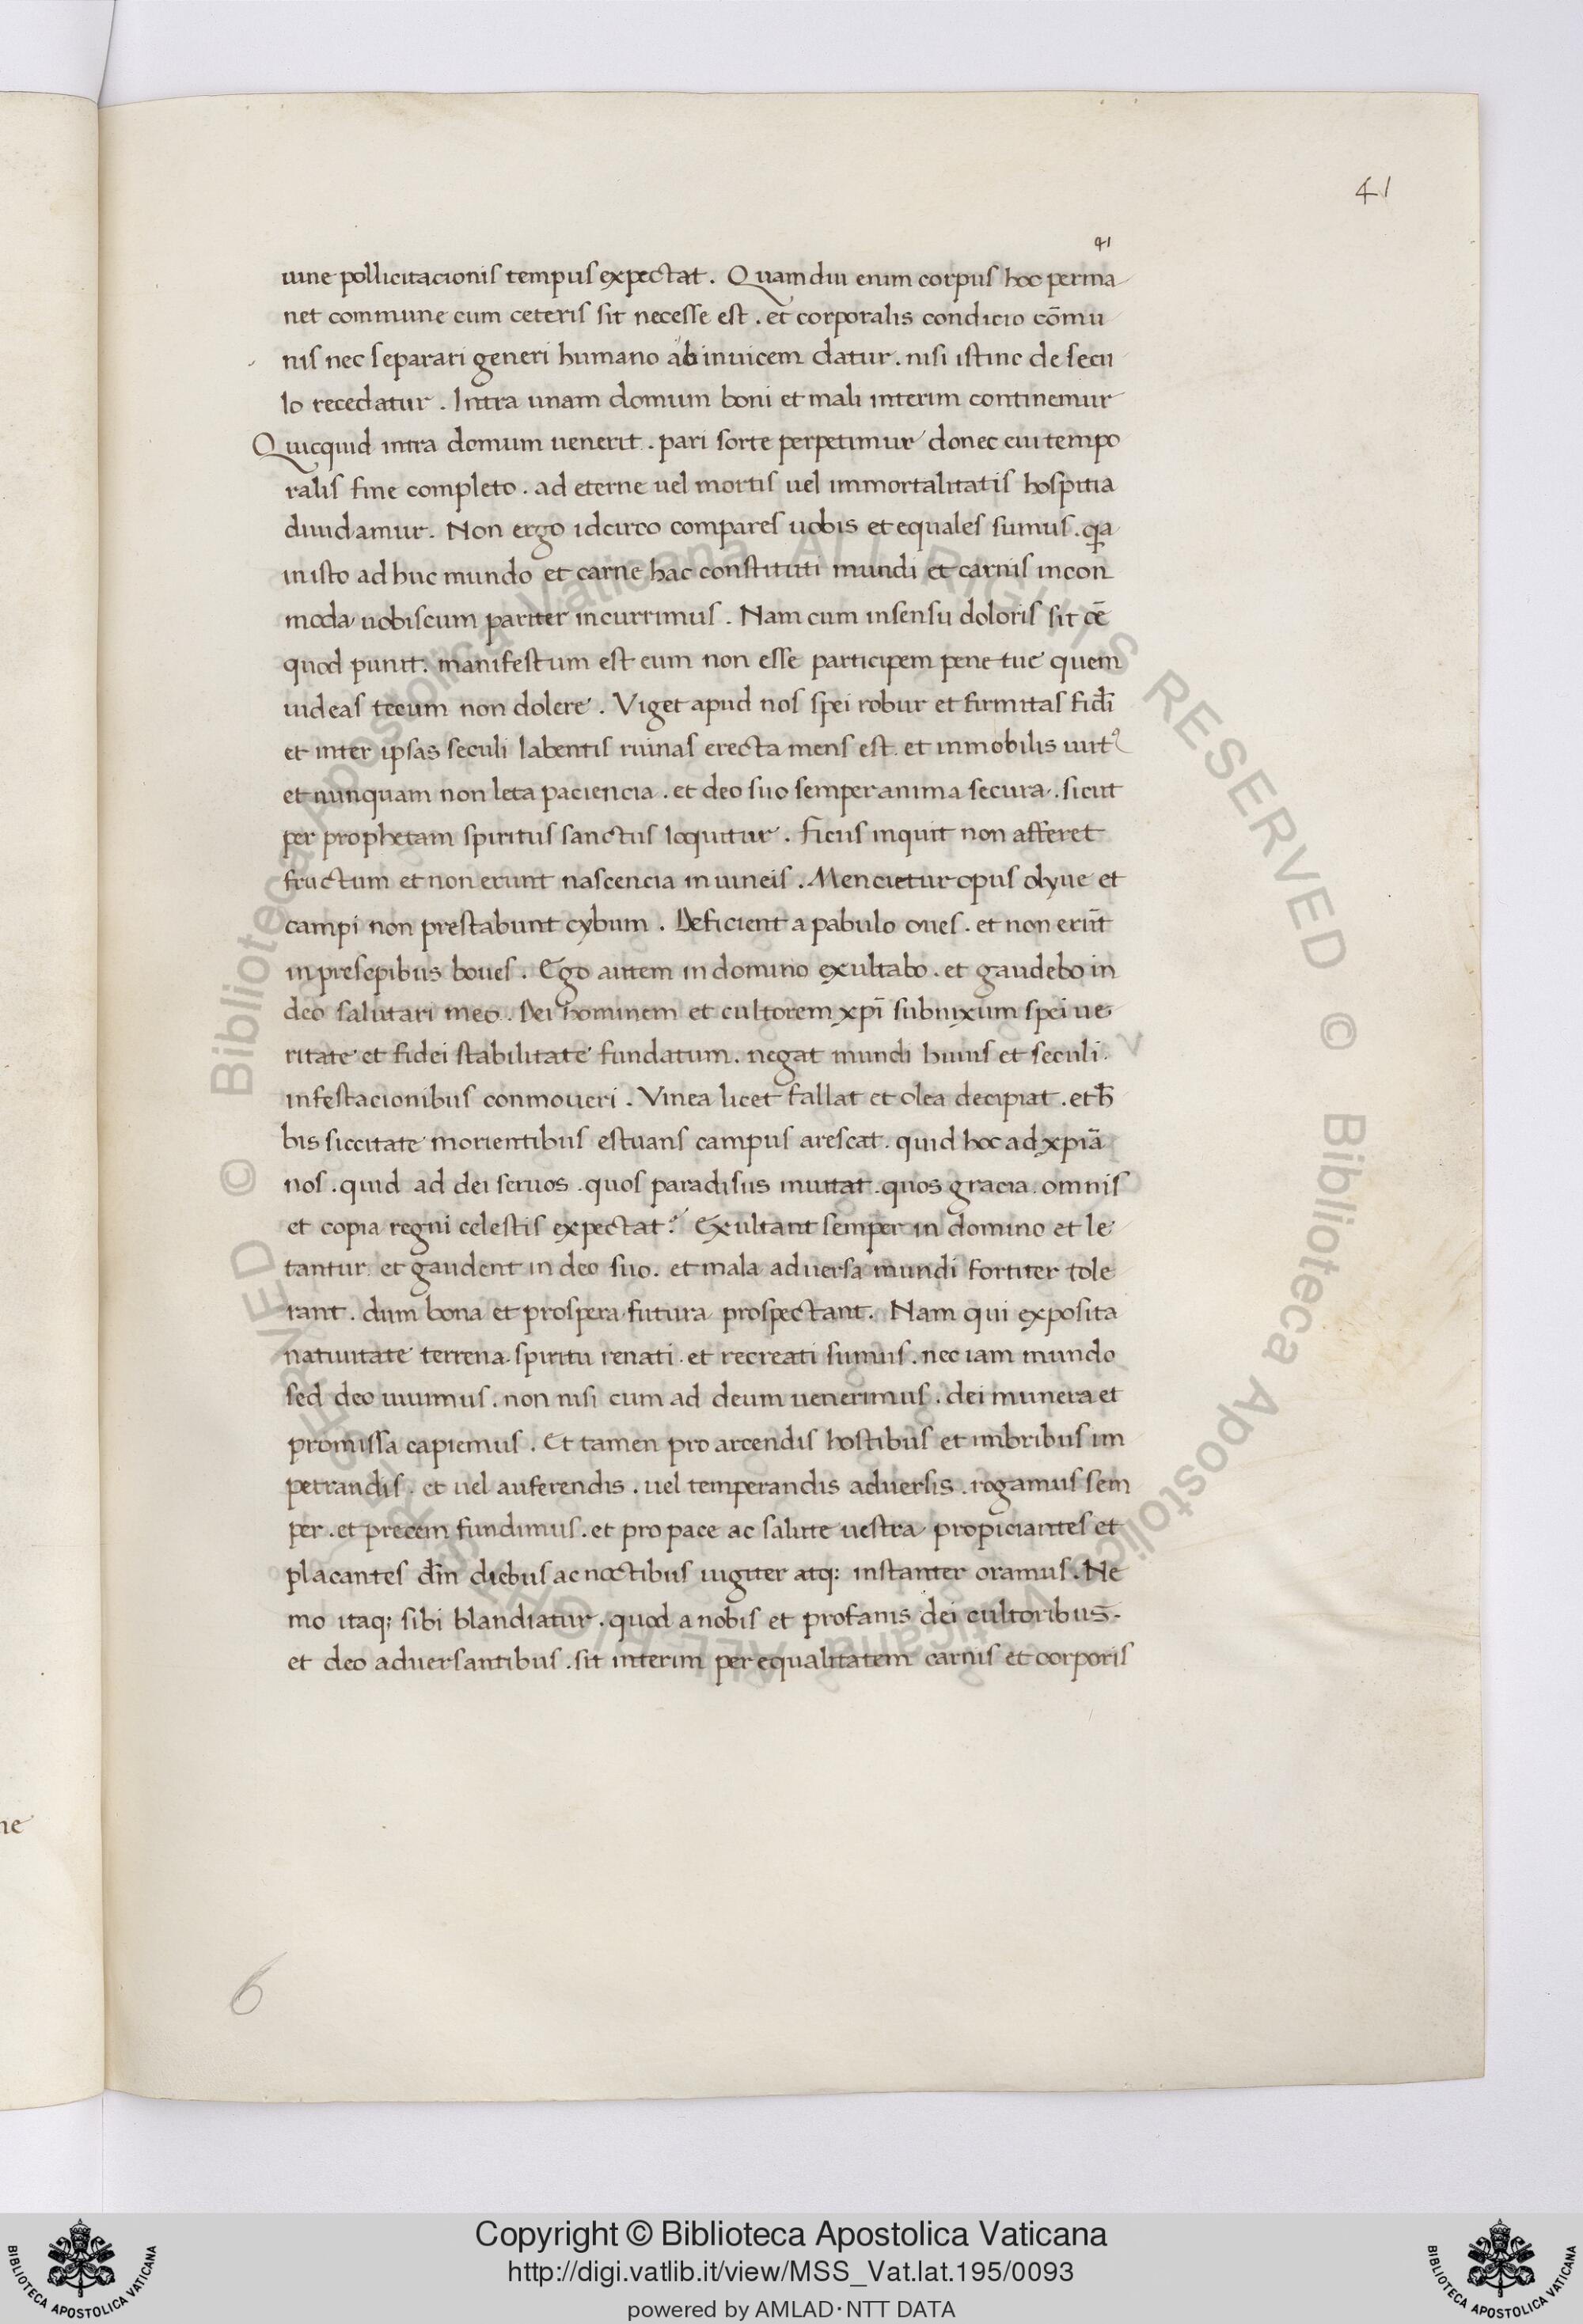 41
41
uine pollicitacionis tempus expectat . Quamdiu enim corpus hoc perma
net commune cum ceteris sit necesse est . et corporalis condicio cōmu
nis nec separari generi humano ab inuicem datur . nisi istinc de secu
lo recedatur . Intra unam domum boni et mali interim continemur
Quicquid intra domum uenerit . pari sorte perpetimur donec eui tempo
ralis fine completo . ad eterne uel mortis uel immortalitatis hospitia
diuidamur . Non ergo idcirco compares uobis et equales sumus . qa
in isto ad huc mundo et carne hac constituti mundi et carnis incon
moda uobiscum pariter incurrimus . Nam cum in sensu doloris sit oē
quod punit : manifestum est eum non esse participem pene tue quem
uideas tecum non dolere . Viget apud nos spei robur et firmitas fidī
et inter ipsas seculi labentis ruinas erecta mens est . et inmobilis uirtꝰ
et nunquam non leta paciencia . et deo suo semper anima secura . sicut
per prophetam spiritus sanctus loquitur . Ficus inquit non afferet
fructum et non erunt nascencia in uineis . Mencietur opus olyue et
campi non prestabunt cybum . Deficient a pabulo oues . et non erūt
in presepibus boues . Ego autem in domino exultabo . et gaudebo in
deo salutari meo . Dei hominem et cultorem xpī subnixum spei ue
ritate et fidei stabilitate fundatum . negat mundi huius et seculi
infestacionibus conmoueri . Vinea licet fallat et olea decipiat . et h̄
bis siccitate morientibus estuans campus arescat . quid hoc ad xpiā
nos . quid ad dei seruos . quos paradisus inuitat . quos gracia omnis
et copia regni celestis expectat ? Exultant semper in domino et le
tantur . et gaudent in deo suo . et mala aduersa mundi fortiter tole
rant . dum bona et prospera futura prospectant . Nam qui exposita
natiuitate terrena . spiritu renati . et recreati sumus . nec iam mundo
sed deo uiuimus . non nisi cum ad deum uenerimus . dei munera et
promissa capiemus . Et tamen pro arcendis hostibus et imbribus im
petrandis . et uel auferendis . uel temperandis aduersis . rogamus sem
per . et precem fundimus . et pro pace ac salute uestra propiciantes et
placantes dīn diebus ac noctibus iugiter atq: instanter oramus . Ne
mo itaq; sibi blandiatur . quod a nobis et profanis dei cultoribus
et deo aduersantibus . sit interim per equalitatem carnis et corporis
6
ne
© Biblioteca Apostolica Vaticana ALL RIGHTS RESERVED © Biblioteca Apostolica Vaticana ALL RIGHTS RESERVED
Copyright © Biblioteca Apostolica Vaticana
http://digi.vatlib.it/view/MSS_Vat.lat.195/0093
powered by AMLAD·NTT DATA
BIBLIOTECA APOSTOLICA VATICANA
BIBLIOTECA APOSTOLICA VATICANA